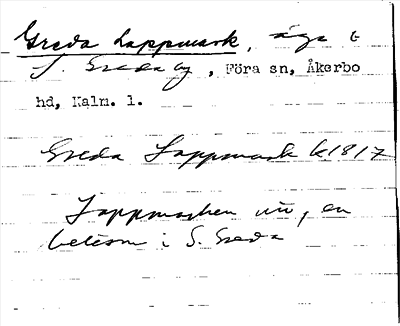 Greda Lappmark, äga t
S. Greda by, Föra sn, Åkerbo
hd, Kalm. l.
Greda Lappmark k 1817
Lappmarken nu, en
beteom i S. Greda